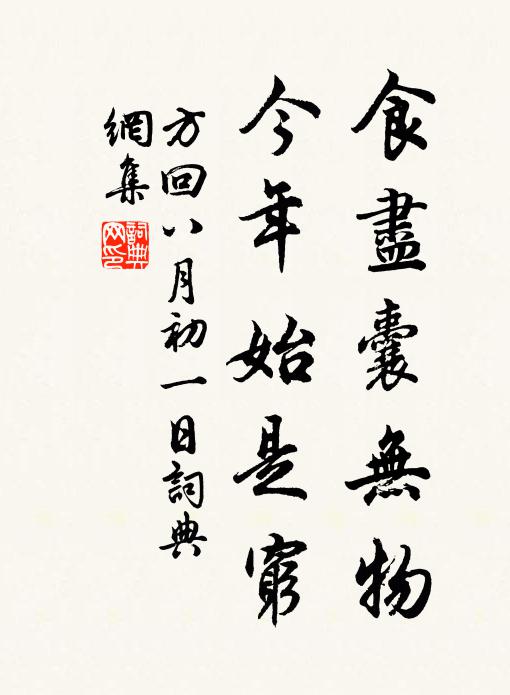 食盡囊無物
今年始是窮
方回八月初一日詞典
網集
詞典网印